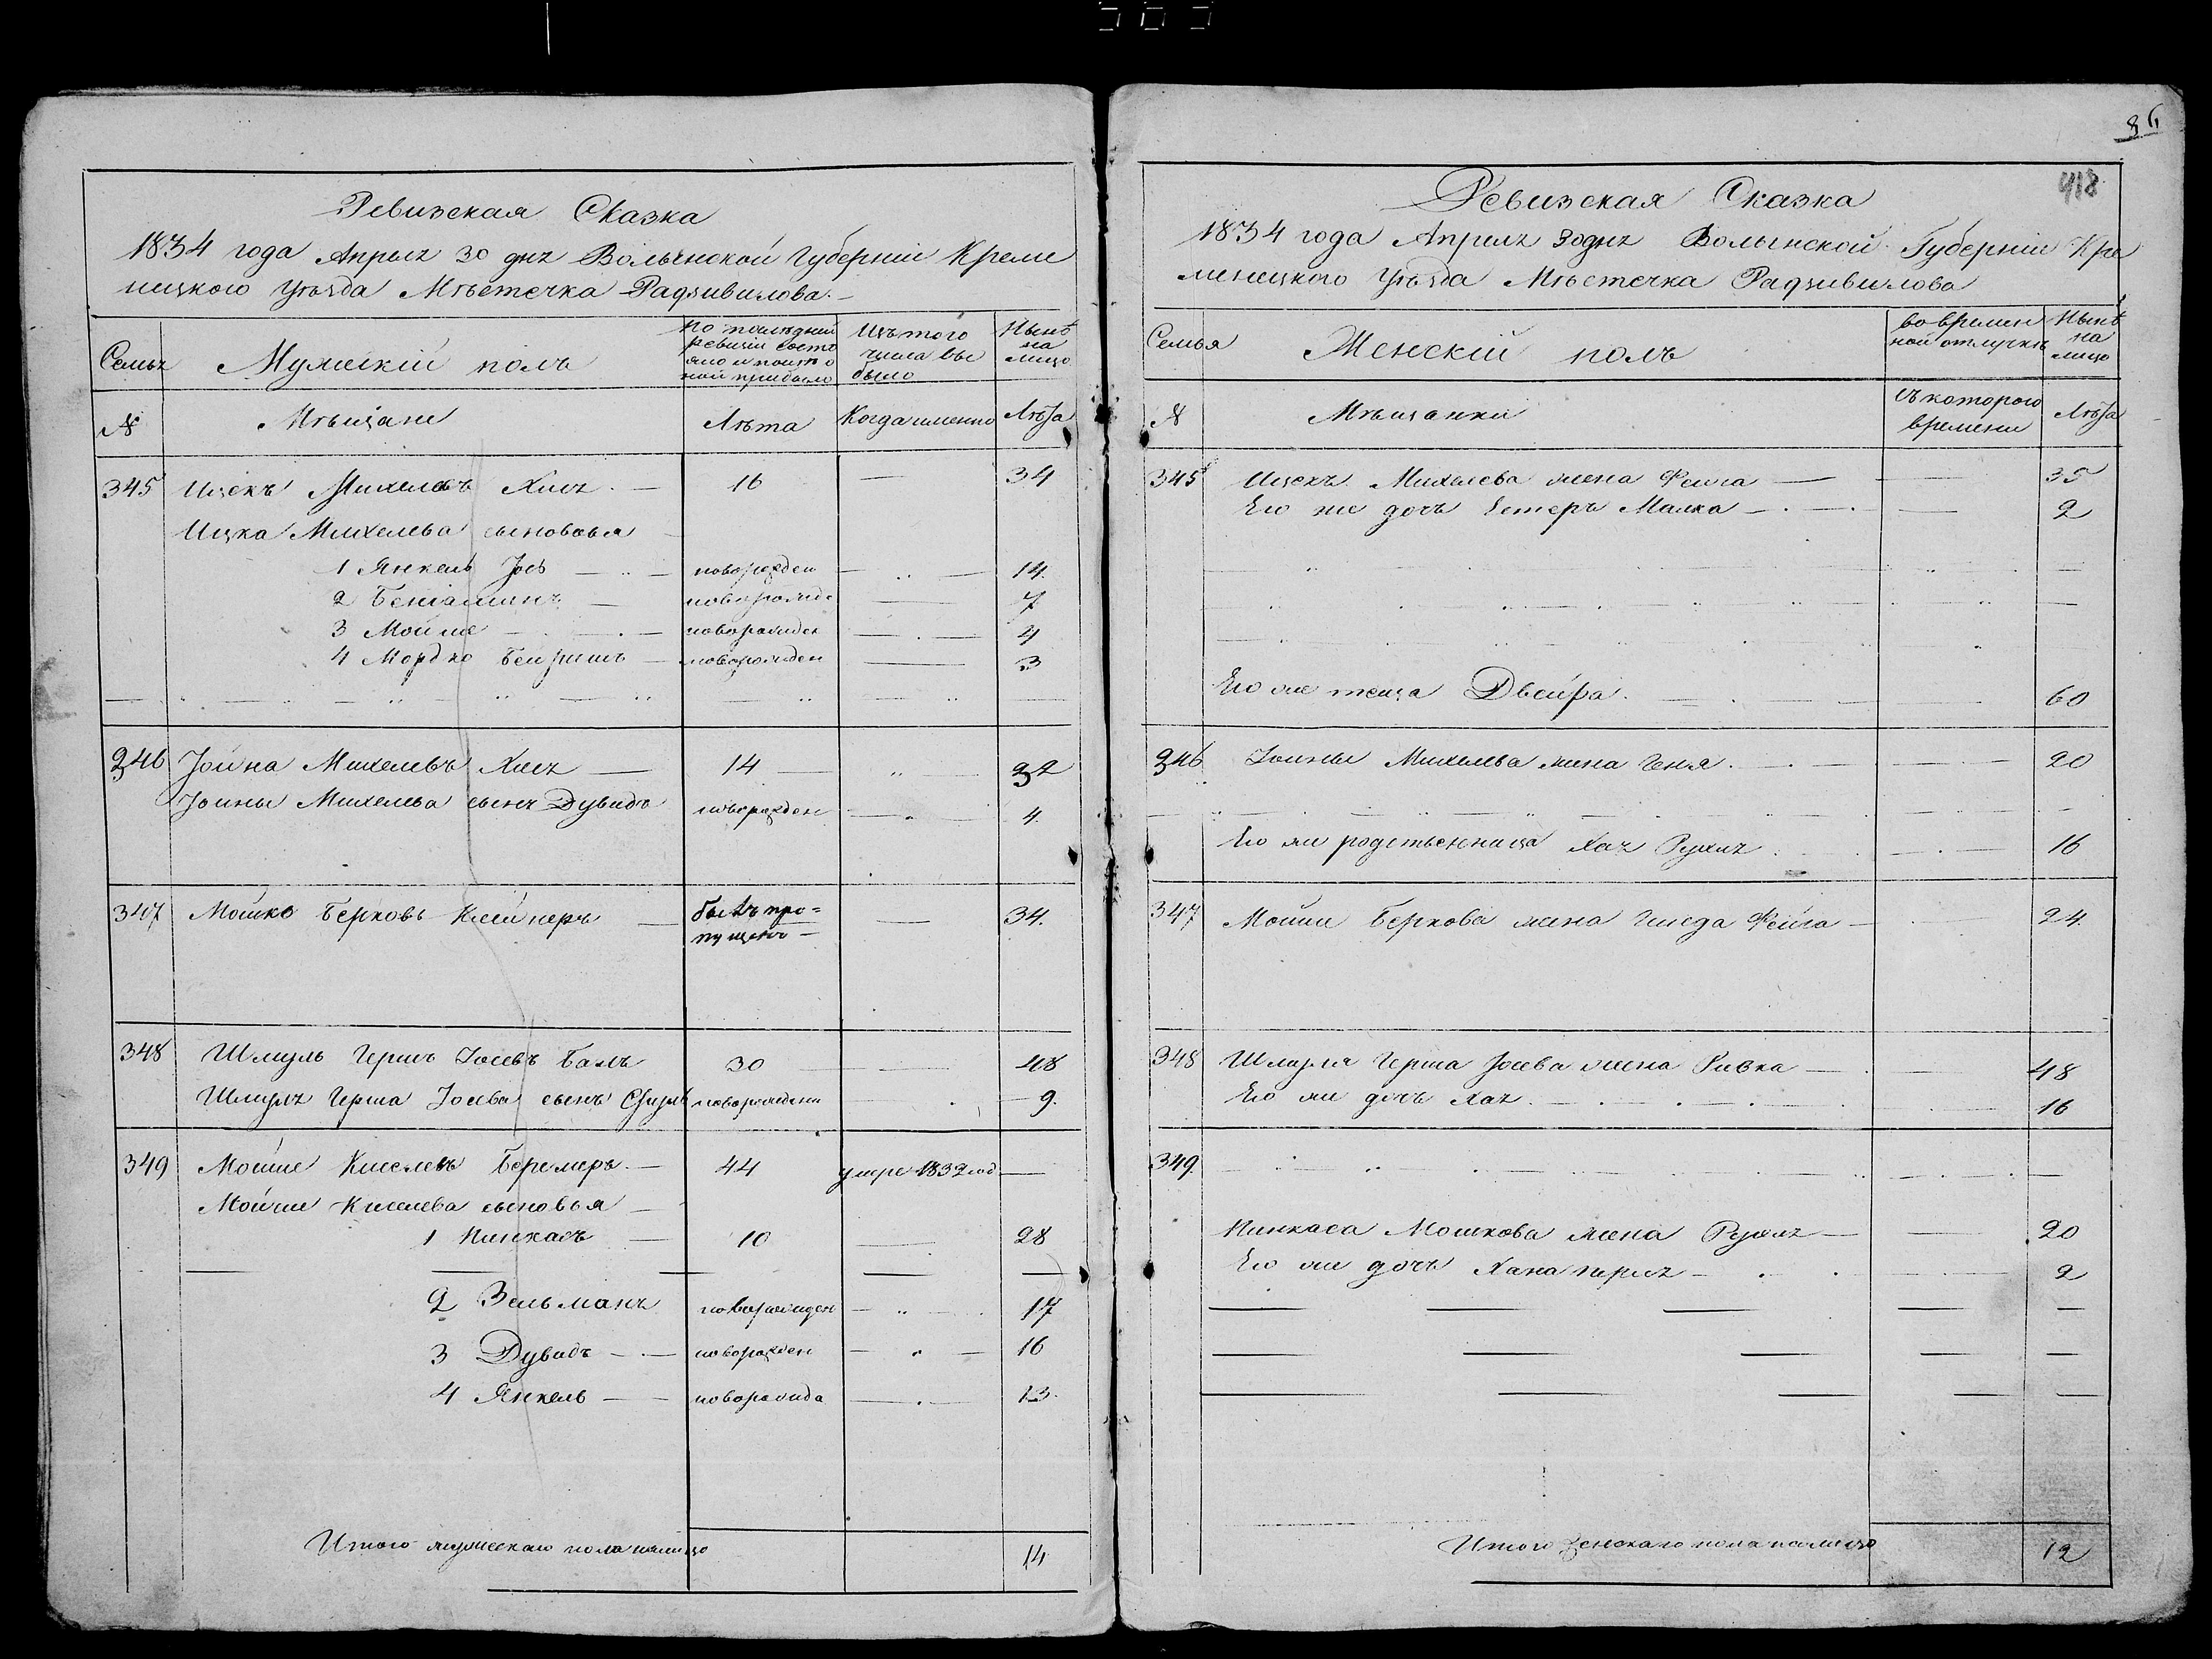 86
418
Ревизская Сказка
1834 года Апреля 30 дня Волынской Губерніи Креме
нецкого Уѣзда Мѣстечка Радзивилова
Семья
Мужескій полъ
по последней ревизіи состо
яло и после о
ной прибыло
Изъ того
числа вы
было
Нынѣ
на
лицо
№
Мѣщане
Лѣта
Когда именно
Лѣта
345 Ицекъ Михелевъ 16 — 34
Ицка Михелева сыновья
1 Янкель Іось новорожден 14
2 Беніаминъ новорожд 7
3 Мойше новорожден 4
4 Мордко Бейришъ новорожден 3
346 Іойна Михелевъ 14 32
Іойны Михелева сынъ Дувидъ новорожден 4
347 Мошко Берковъ Клейнеръ былъ про= 34.
пущенъ
348 Шмуль Гершъ Іосевъ 30 48
Шмуля Герша Іосева сынъ Сруль новорожденн 9.
349 Мойше Киселевъ 44 умре 1832 год —
Мойше Киселева сыновья
1 Пинкасъ 10 28
2 Зельманъ новорожден 17
3 Дувидъ новорожден 16
4 Янкель новорожде 13.
Итого мужескаго пола налицо 14
Ревизская Сказка
1834 года Апреля 30 дня Волынской Губерніи Кре
менецкого Уѣзда Мѣстечка Радзивилова
Семья
Женскій полъ
во времен
ной отлучкѣ
Нынѣ
на
лицо
№
Мѣщанки
съ которого
времени
Лѣта
345 Ицека Михелева жена Фейга 35
Его же дочь Естеръ Малка 2
Его же теща Двейра 60
346 Іойны Михелева жена Геня 20
Его же родственница Хая Рухля 16
347 Мойши Беркова жена Фейга 24.
348 Шмуля Герша Іосева жена Ривка 48
Его же дочь Хая 16
349
Пинкаса Мошкова жена Рухля 20
Его же дочь Хана Перля 2
Итого женскаго пола налицо 12